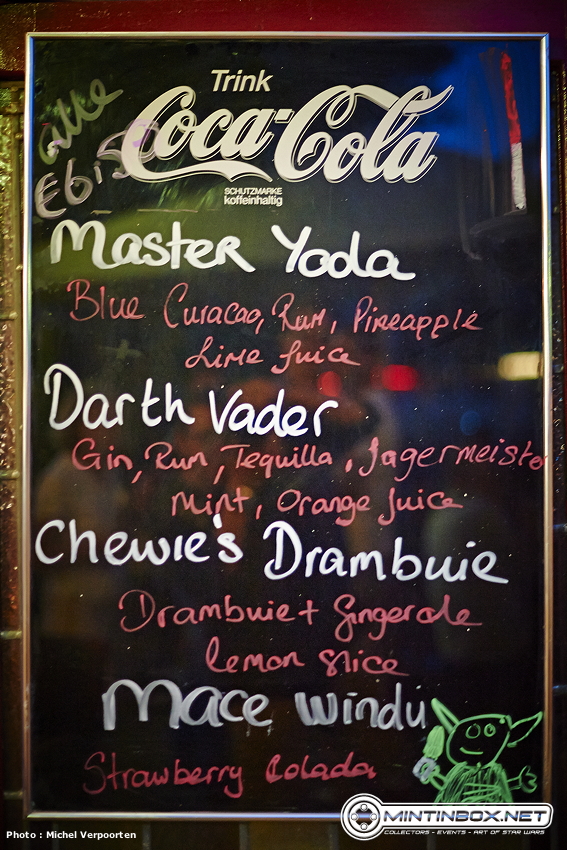 Trink
Coca-Cola
SCHUTZMARKE
koffeinhaltig
Alle
Master Yoda
Blue Curacao, Rum, Pineapple
Lime Juice
Darth Vader
Gin, Rum, Tequilla, Jagermeiste
Mint, Orange Juice
Chewie's Drambuie
Drambuie + Gingerale
lemon slice
Mace Windu
Strawberry Colada
MINTINBOX.NET
COLLECTORS - EVENTS - ART OF STAR WARS
Photo : Michel Verpoorten